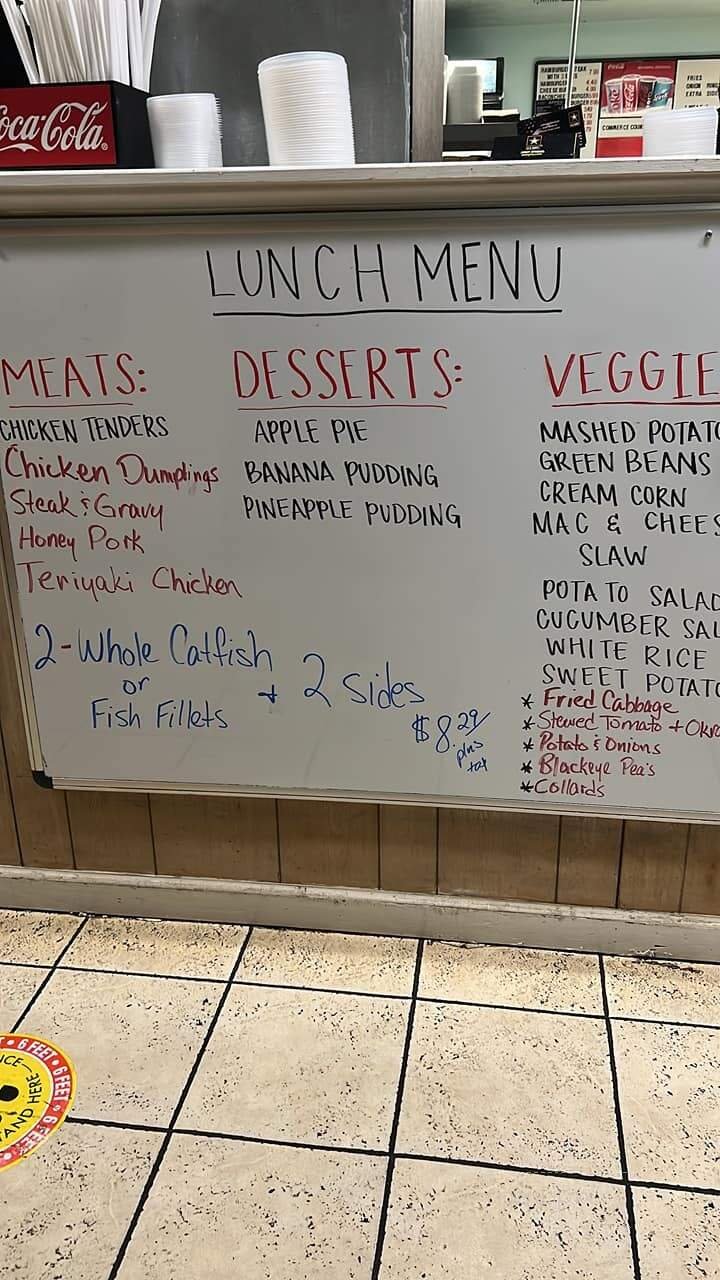 Coca-Cola
LUNCH MENU
MEATS:
CHICKEN TENDERS
Chicken Dumplings
Steak & Gravy
Honey Pork
Teriyaki Chicken
2-Whole Catfish
or
Fish Fillets
+ 2 Sides
$8.29/
plus
tax
DESSERTS:
APPLE PIE
BANANA PUDDING
PINEAPPLE PUDDING
VEGGIE
MASHED POTATO
GREEN BEANS
CREAM CORN
MAC & CHEES
SLAW
POTATO SALAD
CUCUMBER SAL
WHITE RICE
SWEET POTATO
* Fried Cabbage
* Stewed Tomato + Okra
* Potato & Onions
* Blackeye Pea's
* Collards
6 FEET • 6 FEET • 6 FEET
AND HERE